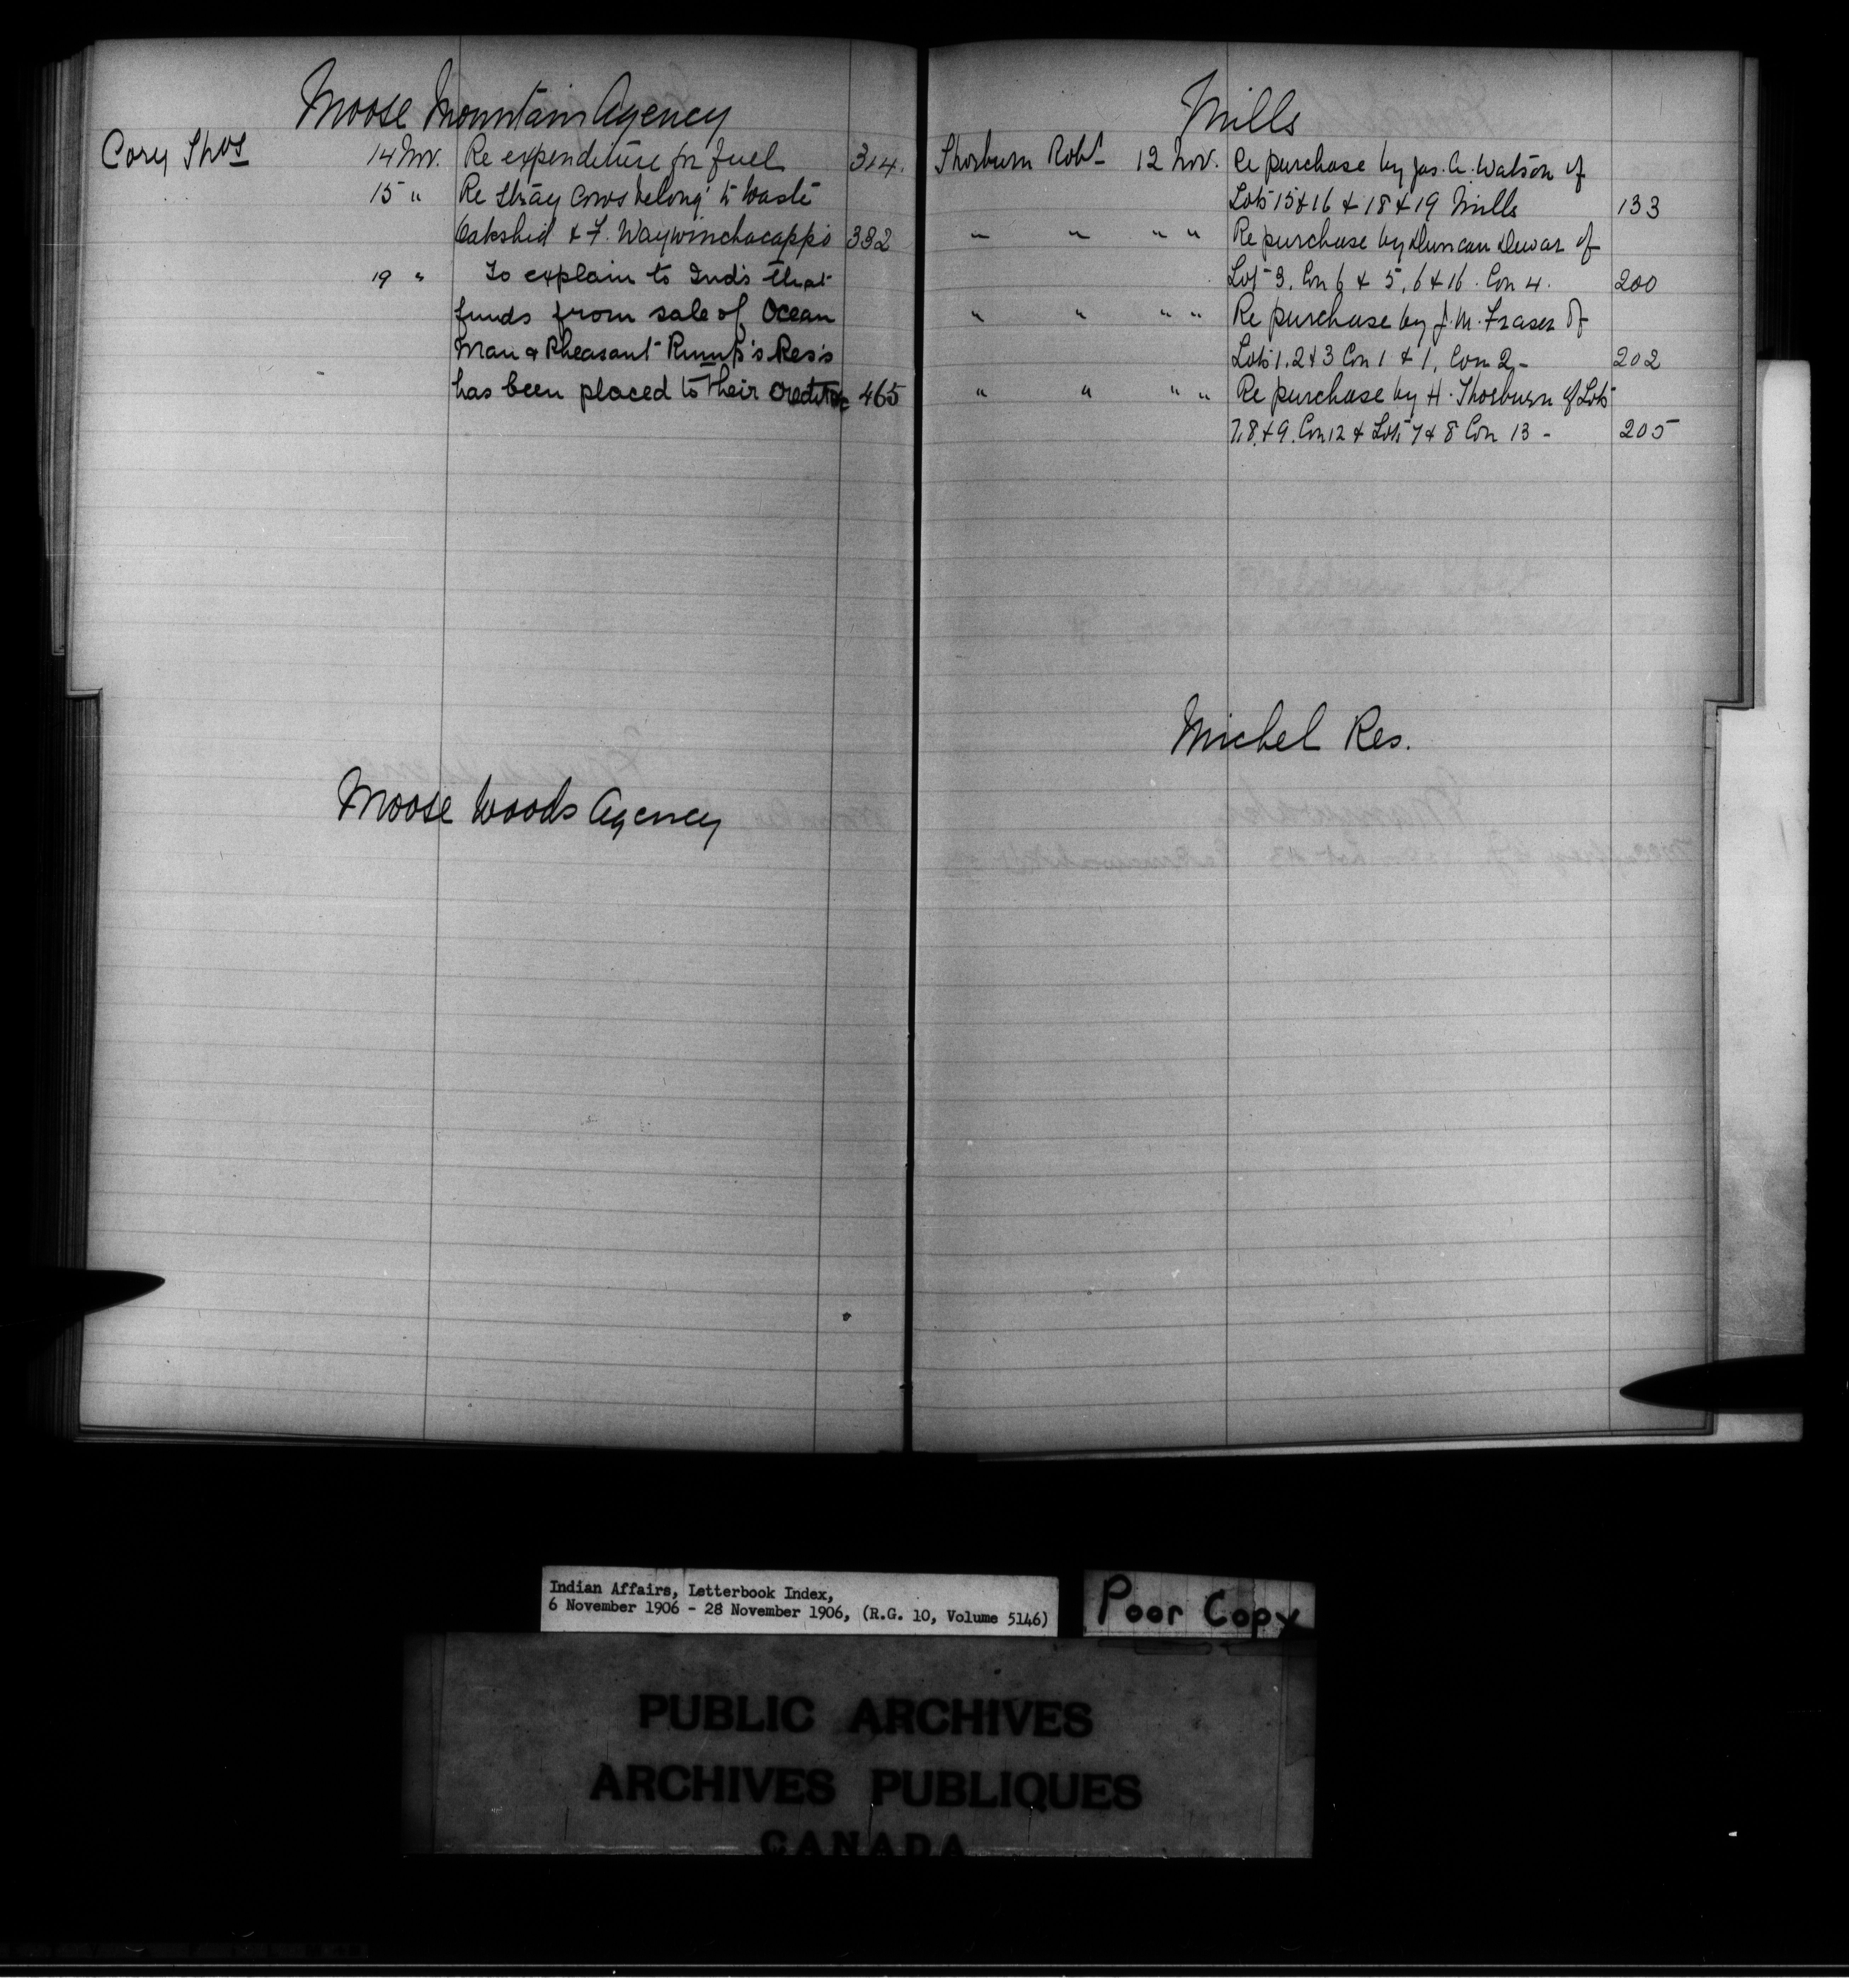 Moose Mountain Agency
Cory Thos 14 Nov. Re expenditure for fuel 314.
15 " Re stray cows belong' to Waste
Oakshid & F. Waywinchacappo 332
19 " To explain to Inds that
funds from sale of Ocean
Man & Pheasant Rump's Res's
has been placed to their credit 465
Moose Woods Agency
Mills
Thorburn Robt 12 Nov. Re purchase by Jas. A. Watson of
Lots 15 & 16 & 18 & 19 Mills 133
" " " " Re purchase by Duncan Dewar of
Lot 3, Con 6 & 5, 6 & 16. Con 4. 200
" " " " Re purchase by J. M. Fraser of
Lots 1, 2 & 3 Con 1 & 1, Con 2, - 202
" " " " Re purchase by H. Thorburn of Lots
7, 8, & 9. Con 12 & Lots 7 & 8 Con 13 - 205
Michel Res.
Indian Affairs, Letterbook Index,
6 November 1906 - 28 November 1906, (R.G. 10, Volume 5146)
Poor Copy
PUBLIC ARCHIVES
ARCHIVES PUBLIQUES
CANADA